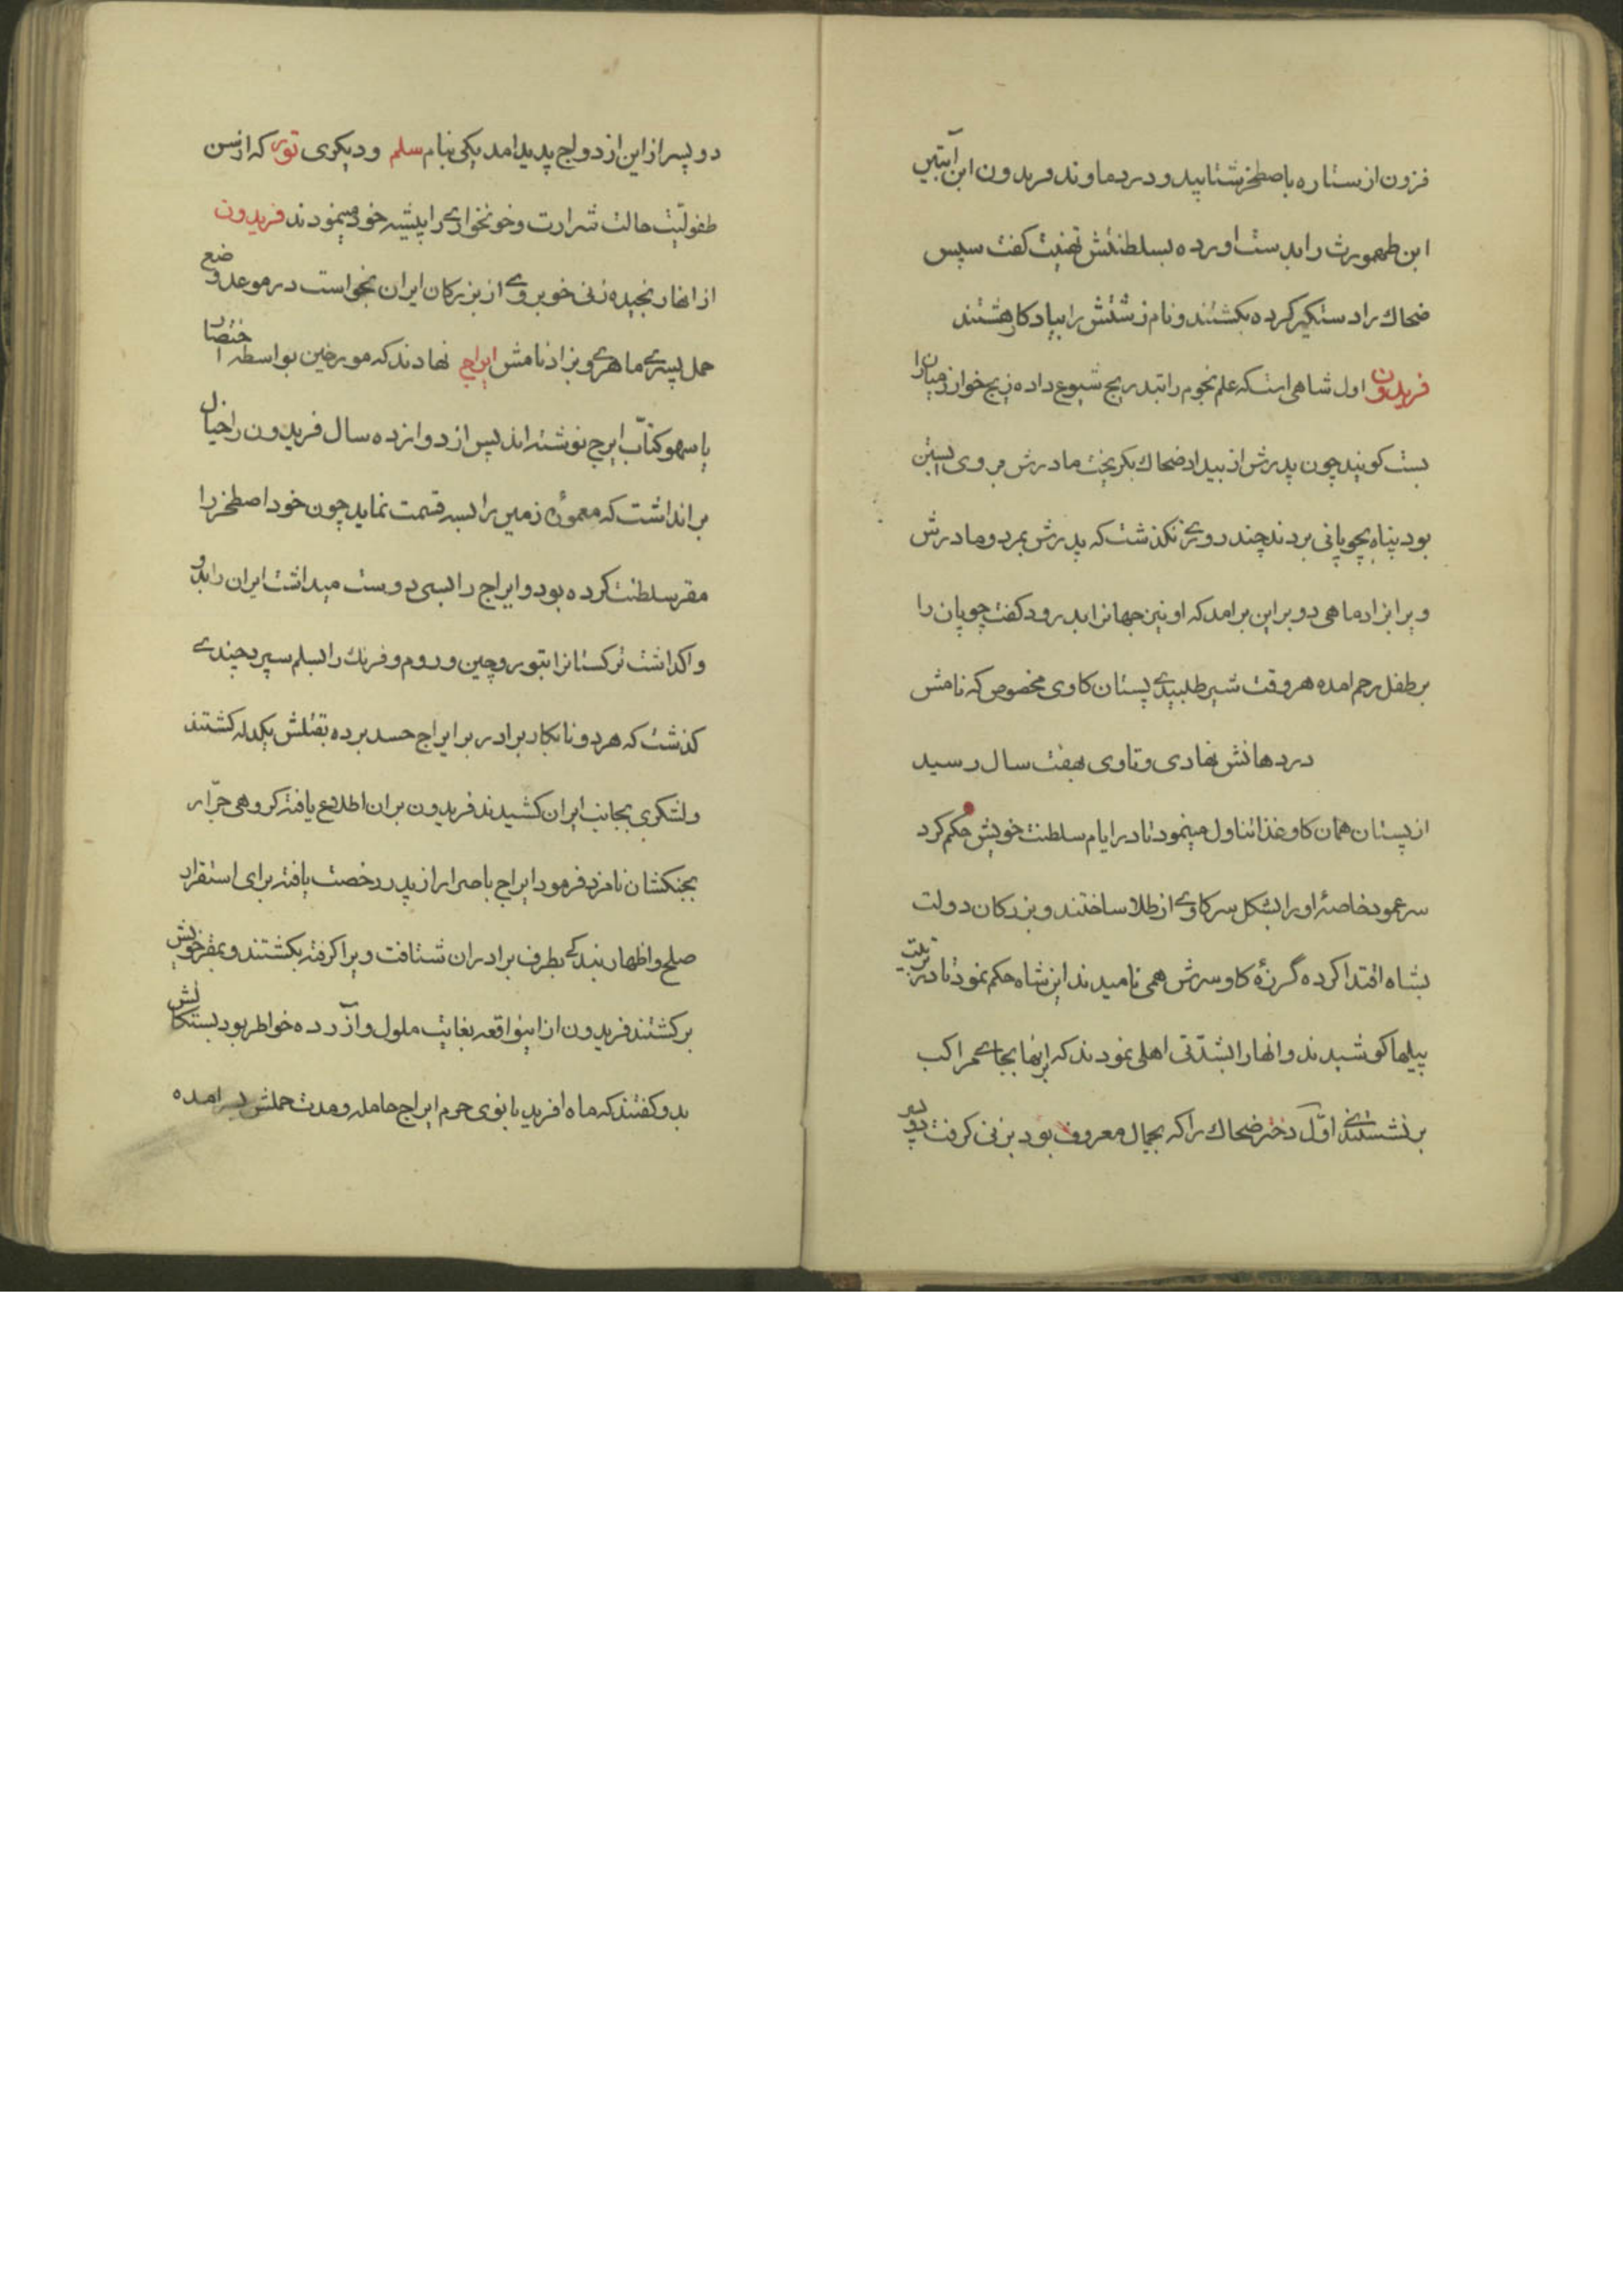 فزون از ستاره باصطخر شتابید و در دماوند فریدون ابن آبتین
ابن طهمورث را بدست اورده بسلطنتش تهنیت کفت سپس
ضحاك را دستکیر کرده بکشتند و نام زشتش را بیادکار هشتند
فریدون اول شاهی است که علم نجوم را بتدریج شیوع داده زیج خوارزمیان را
بست کویند چون پدرش از بیداد ضحاك بکریخت مادرش بر وی آبستن
بود پناه بچوپانی بردند چند روزے نکذشت که پدرش بمرد و مادرش
ویرا بزاد ماهی دو براین برامد که او نیز جهانرا بدرود کفت چوپان را
بر طفل رحم امده هر وقت شیر طلبیدے پستان کاوی مخصوص که نامش
در دهانش نهادی و تا وی بهفت سال رسید
از پستان همان کاو غذا تناول مینمود تا در ایام سلطنت خویش حکم کرد
سر عمود خاصۀ او را بشکل سر کاوے از طلا ساختند و بزرکان دولت
بشاه اقتدا کرده گرزۀ کاو سرش همی نامیدند این شاه حکم نمود تا در تربیت
پیلها کوشیدند و انها را بشدّتی اهلی نمودند که اینها بجاے مراکب
بر نشستندے اوّل دختر ضحاك را که بجمال معروف بود بزنی کرفت
دو پسر از این ازدواج پدید امد یکی بنام سلم و دیکری تور که از سن
طفولیّت حالت شرارت و خونخوارے را پیشه خود مینمودند فریدون
از انها رنجیده زنی خوبروے از بزرکان ایران بخواست در موعد وضع
حمل پسرے ماهروے بزاد نامش ایراج نهادند که مورخین بواسطه اختصار
یا سهو کتّاب ایرج نوشته اند پس از دوازده سال فریدون را خیال
بر انداشت که معمورۀ زمین را بسه قسمت نماید چون خود اصطخر را
مقر سلطنت کرده بود و ایراج را بسی دوست میداشت ایران را بدو
واکذاشت ترکستانرا بتور و چین و روم و فرنك را بسلم سپرد چندے
کذشت که هر دو نابکار برادر بر ایراج حسد برده بقتلش یکدله کشتند
و لشکری بجانب ایران کشیدند فریدون بران اطلاع یافته کروهی جرّار
بجنکشان نامزد فرمود ایراج باصرار از پدر رخصت یافته برای استقرار
صلح و اظهار بندکے بطرف برادران شتافت ویرا کرفته بکشتند و بمقر خویش
برکشتند فریدون از اینواقعه بغایت ملول و آزرده خواطر بود بستکانش
بدو کفتند که ماه افرید بانوی حرم ایراج حامله و مدت حملش در امده